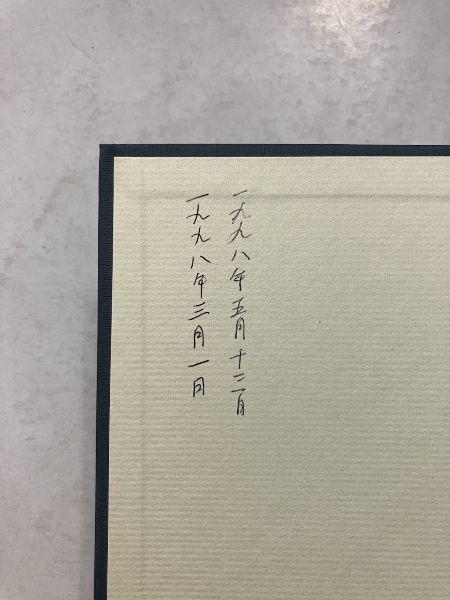 一九九八年五月十二日
一九九八年三月一日